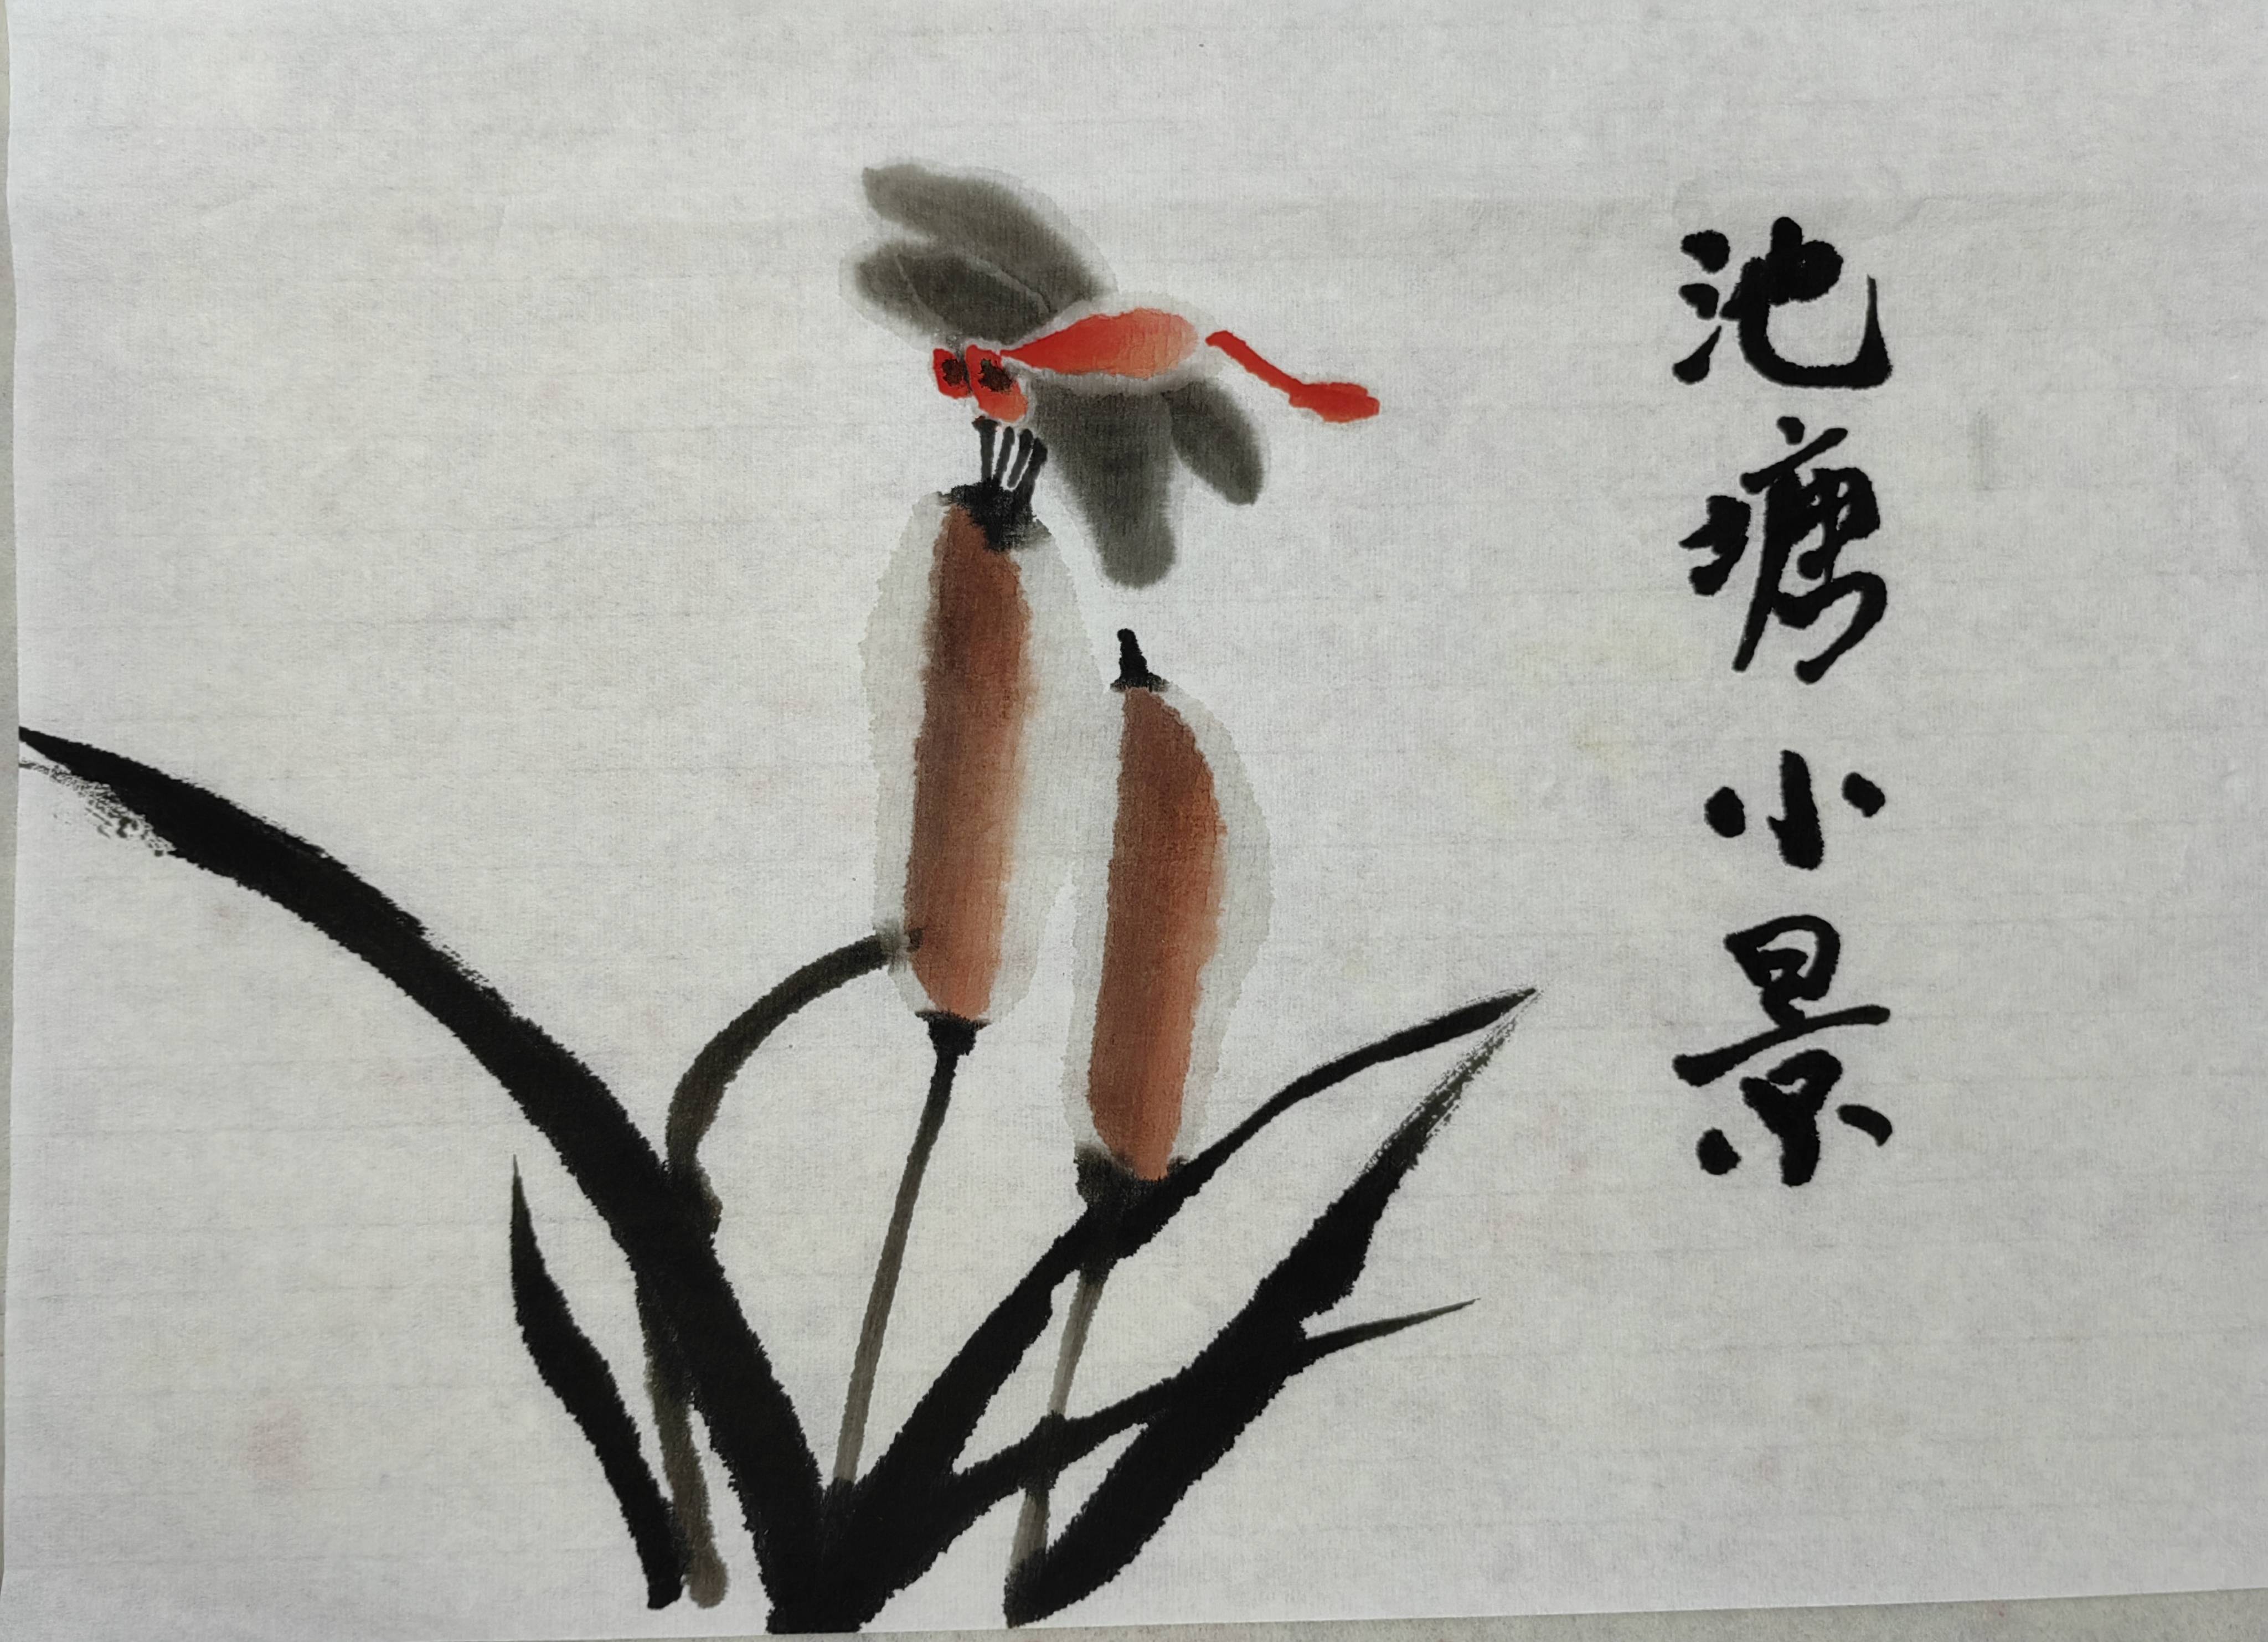 池塘小景